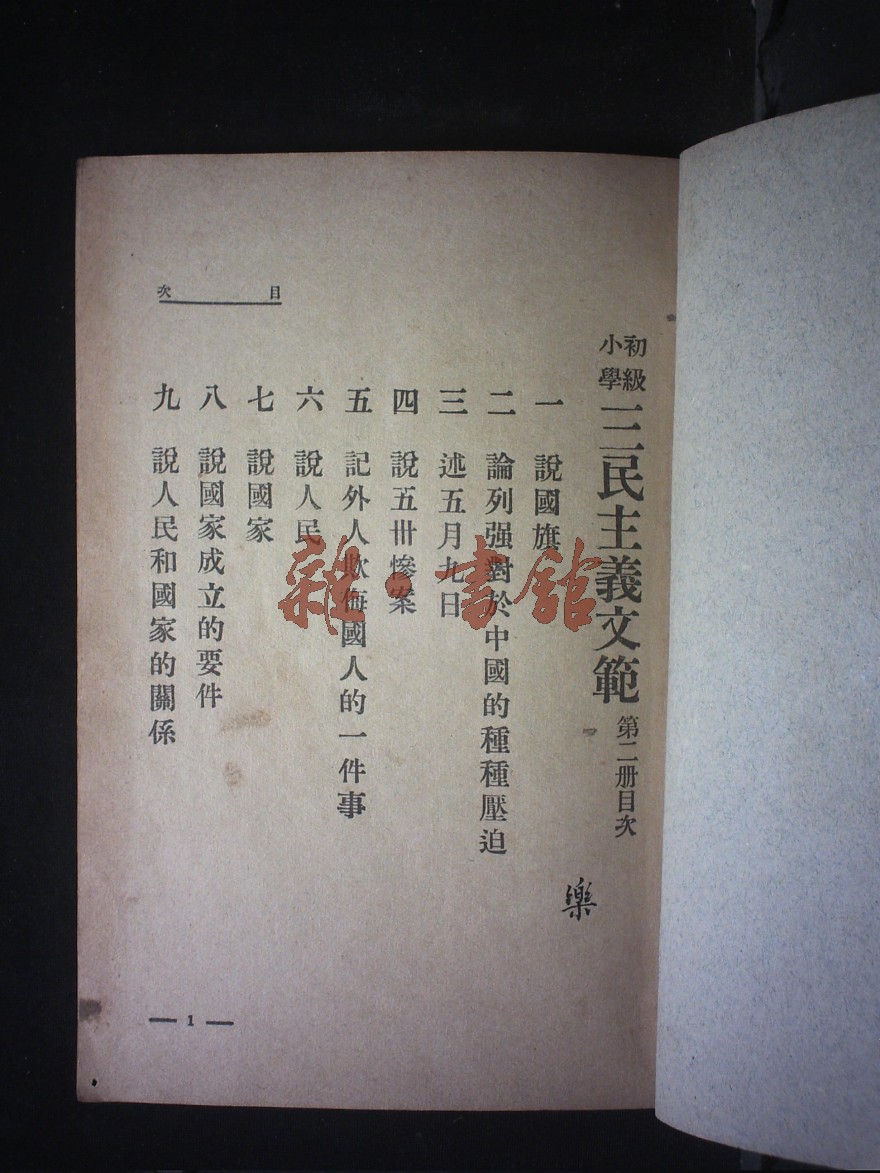 初級小學三民主義文範 第二册目次
樂
一 說國旗
二 論列强對於中國的種種壓迫
三 述五月九日
四 說五卅慘案
五 記外人欺侮國人的一件事
六 說人民
七 說國家
八 說國家成立的要件
九 說人民和國家的關係
目次
1
雜·書館